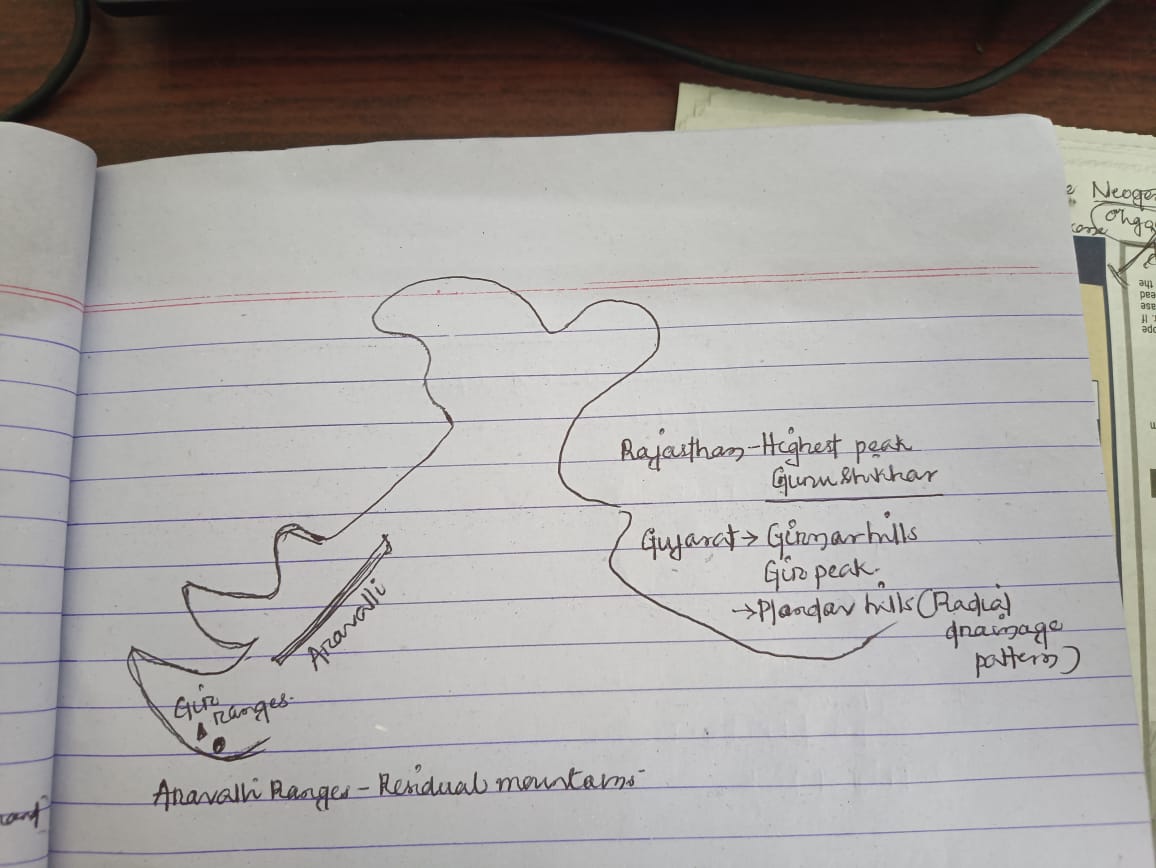 Neoge
Rajasthan - Highest peak
Guru Shikhar
Gujarat → Girnar hills
Gir peak.
→ Mandav hills (Radial
drainage
pattern)
Aravalli
Gir
ranges.
Aravalli Ranges - Residual mountains